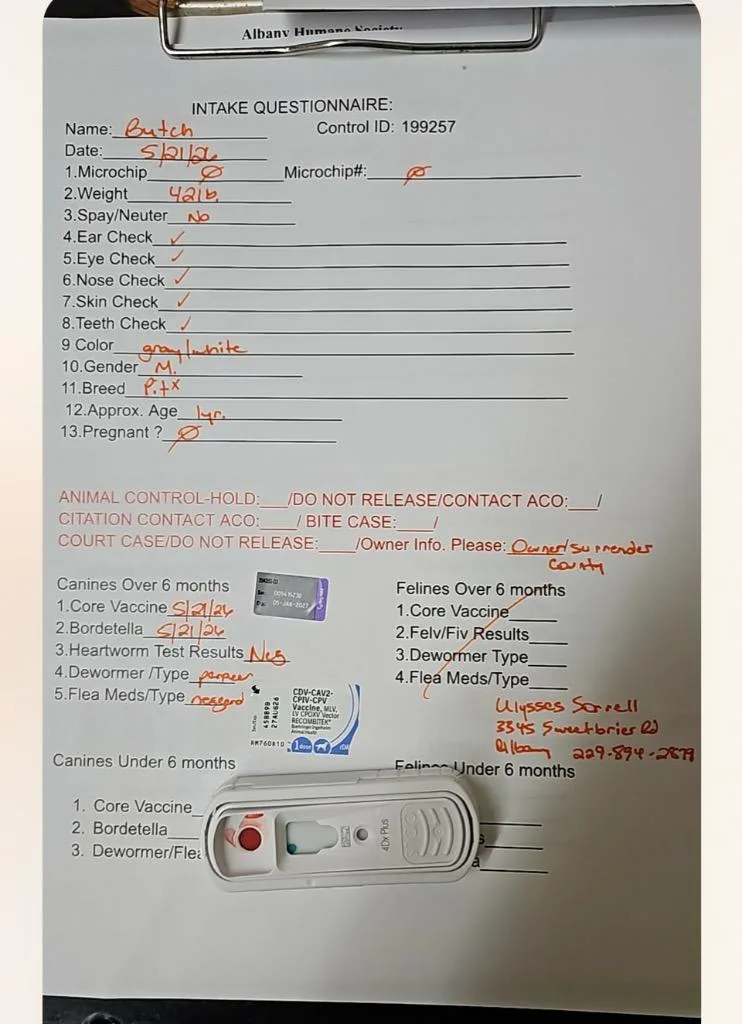 Albany Humane Society
INTAKE QUESTIONNAIRE:
Name: Butch
Control ID: 199257
Date: 5/21/26
1.Microchip Ø Microchip#: Ø
2.Weight 42lb.
3.Spay/Neuter No
4.Ear Check ✓
5.Eye Check ✓
6.Nose Check ✓
7.Skin Check ✓
8.Teeth Check ✓
9 Color gray/white
10.Gender M.
11.Breed Pitx
12.Approx. Age 1yr.
13.Pregnant ? Ø
ANIMAL CONTROL-HOLD:___/DO NOT RELEASE/CONTACT ACO:___/
CITATION CONTACT ACO:____/ BITE CASE:____/
COURT CASE/DO NOT RELEASE:____/Owner Info. Please: Owner/surrender
County
Canines Over 6 months
1.Core Vaccine 5/21/26
2.Bordetella 5/21/26
3.Heartworm Test Results Neg
4.Dewormer /Type
5.Flea Meds/Type nexgard
05-JAN-2027
CDV-CAV2-
CPIV-CPV
Vaccine, MLV,
LV CPOXV Vector
RECOMBITEK®
Boehringer Ingelheim
Animal Health
1 dose
45889B
27AUG26
Felines Over 6 months
1.Core Vaccine____
2.Felv/Fiv Results____
3.Dewormer Type____
4.Flea Meds/Type____
Ulysses Sorrell
3345 Sweetbrier Rd
Albany 229-894-2879
Canines Under 6 months
1. Core Vaccine
2. Bordetella
3. Dewormer/Flea
Felines Under 6 months
4Dx Plus